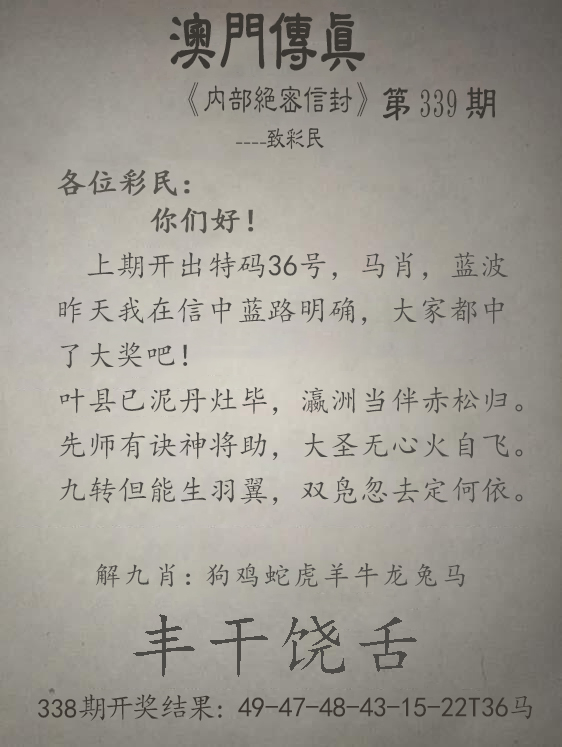 澳門傳眞
《内部絕密信封》第339期
----致彩民
各位彩民：
你们好！
上期开出特码36号，马肖，蓝波
昨天我在信中蓝路明确，大家都中
了大奖吧！
叶县已泥丹灶毕，瀛洲当伴赤松归。
先师有诀神将助，大圣无心火自飞。
九转但能生羽翼，双凫忽去定何依。
解九肖：狗鸡蛇虎羊牛龙兔马
丰干饶舌
338期开奖结果：49-47-48-43-15-22T36马